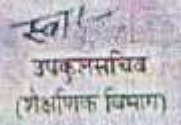 स्वा/-
उपकुलसचिव
(शैक्षणिक विभाग)